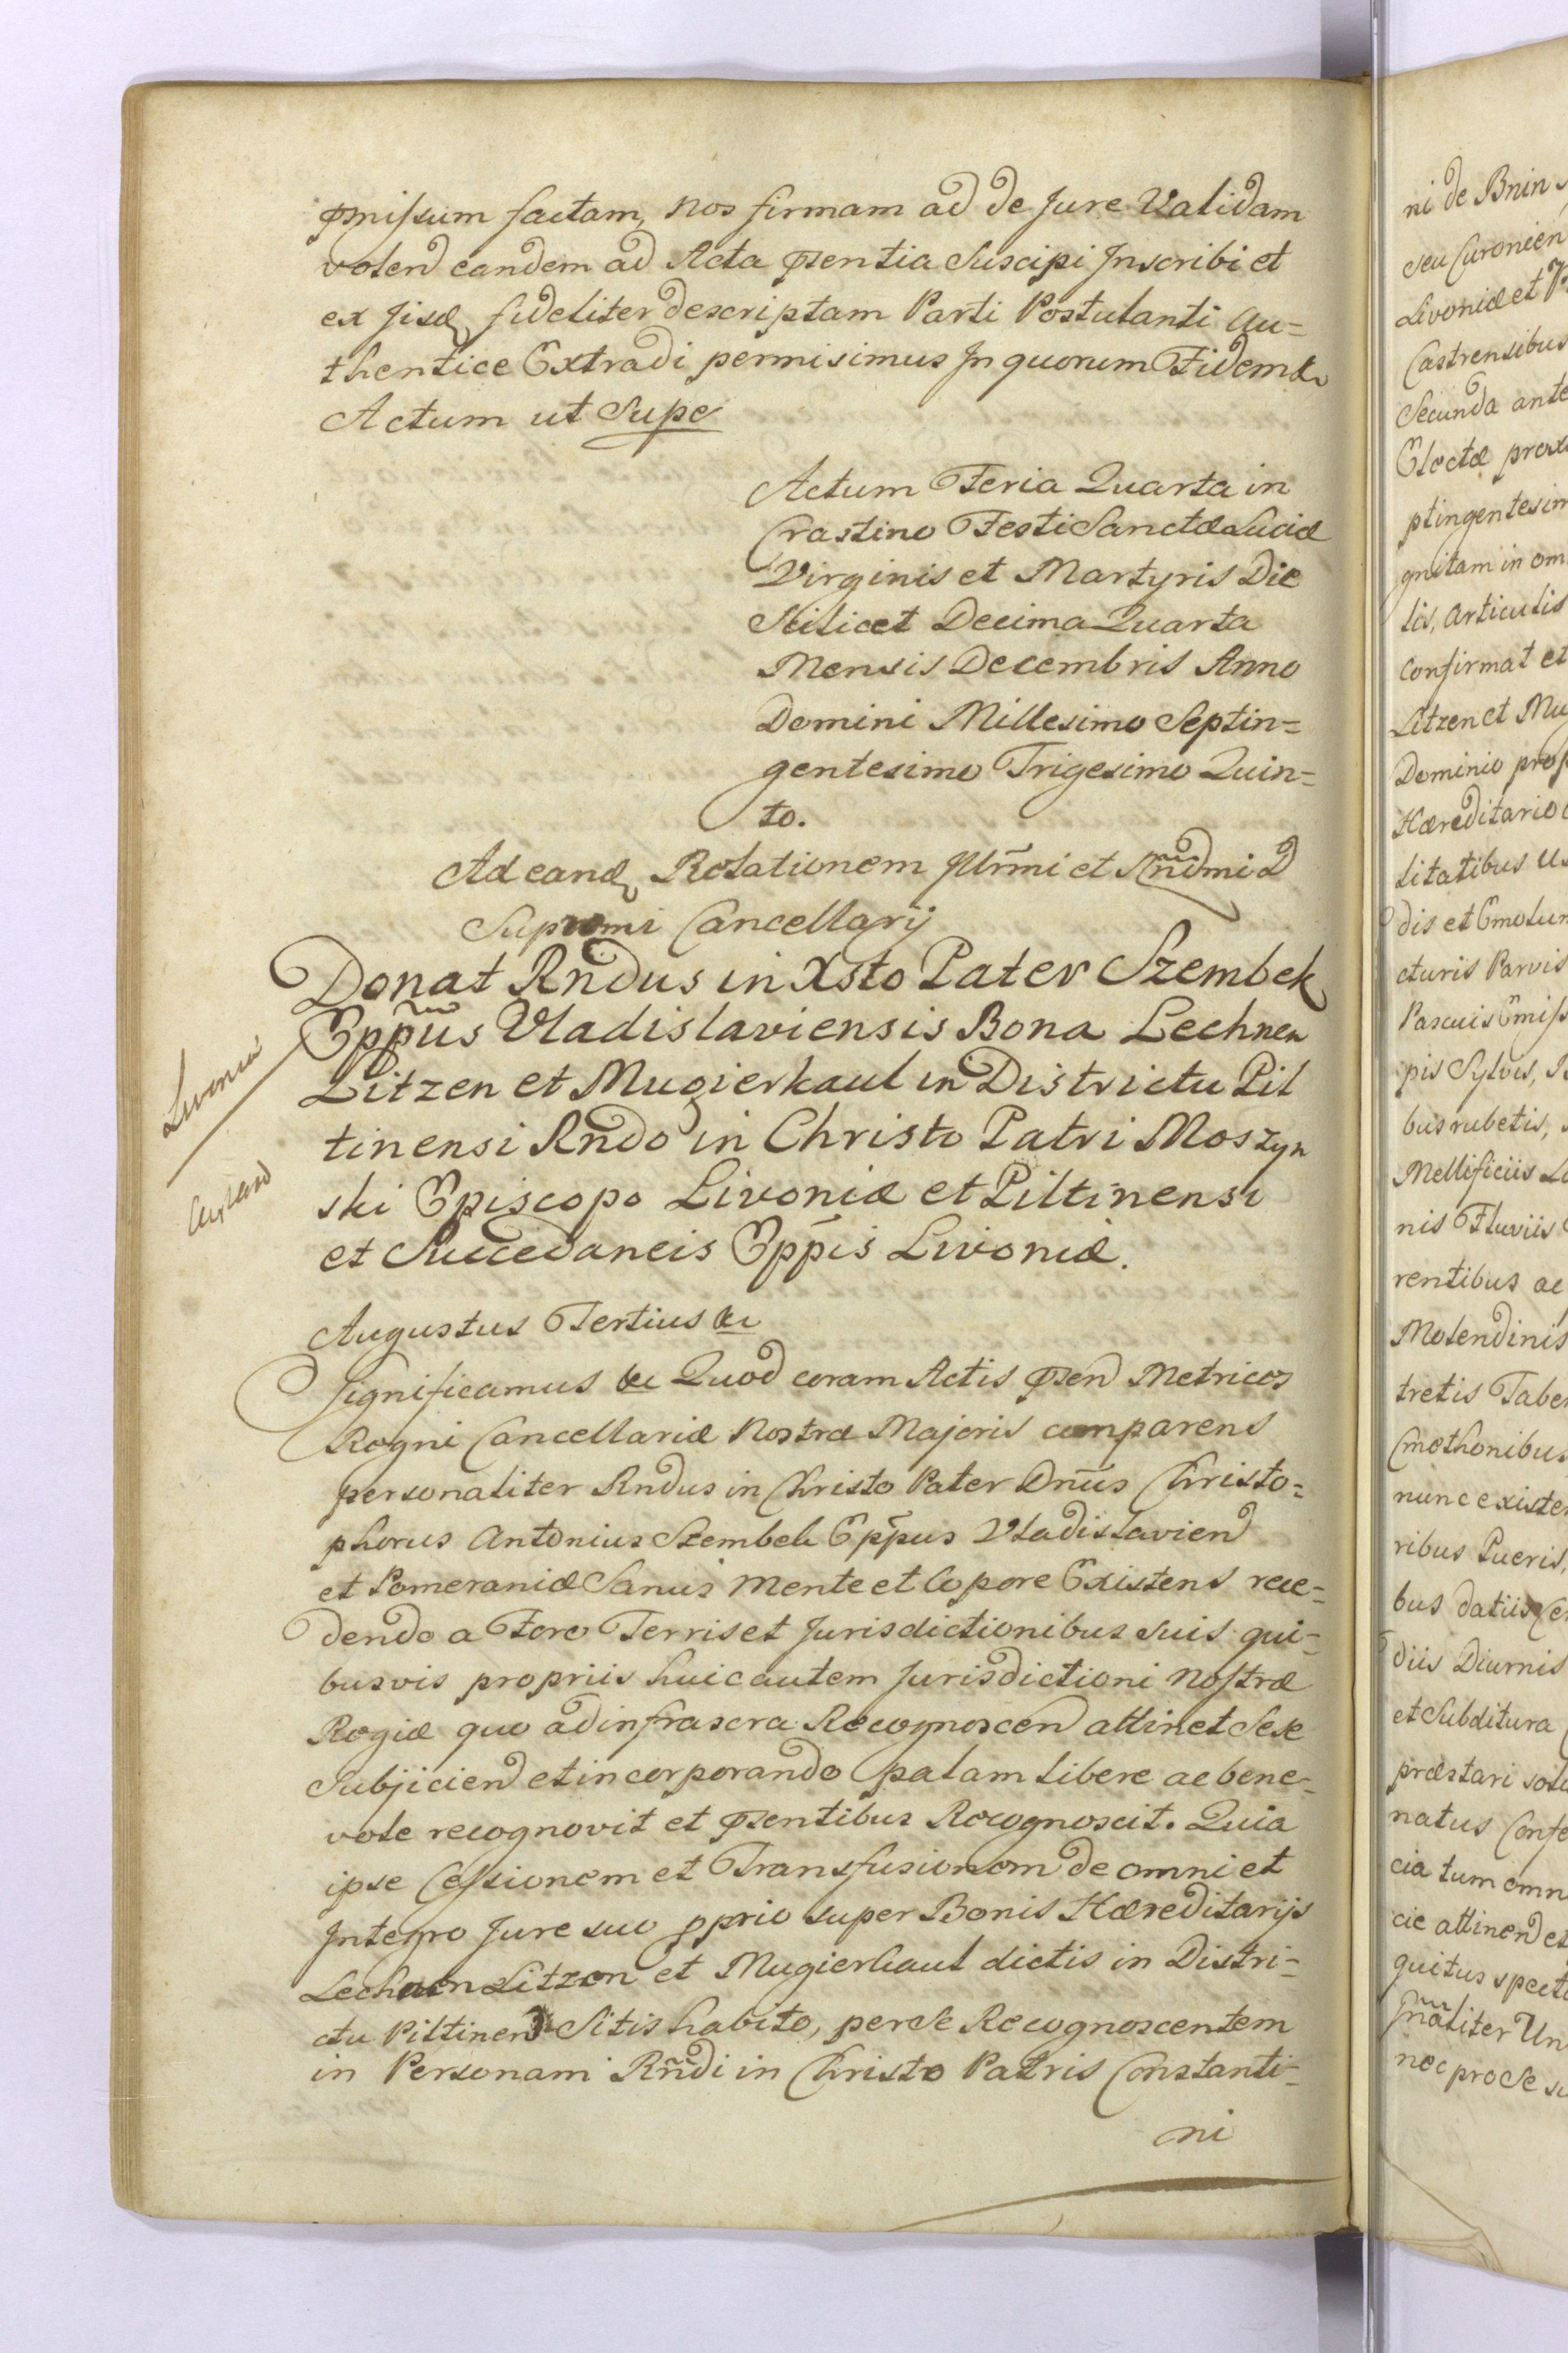 præmissum factam, nos firmam ad de Jure Validam
volend eandem ad Acta præsentia Suscipi Inscribi et
ex Jisdq fideliter descriptam Parti Postulanti Au=
thentice Extradi permisimus In quorum Fidem &c
Actum ut Supe
Actum Feria Quarta in
Crastino Festi Sanctæ Luciæ
Virginis et Martyris Die
Scilicet Decima Quarta
Mensis Decembris Anno
Domini Millesimo Septin=
gentesimo Trigesimo Quin=
to.
Ad eandq Relationem Illrmi et Rndmi D
Supremi Cancellarij
Donat Rndus in Xsto Pater Szembek
Eppus Vladislaviensis Bona Lechnen
Litzen et Mugierkaul in Districtu Pil
tinensi Rndo in Christo Patri Moszyn
ski Episcopo Livoniæ et Piltinensi
et Succedaneis Eppis Livoniæ.
Livoniæ
Augustus Tertius &c
Significamus &c Quod coram Actis præsend Metrices
Regni Cancellariæ Nostræ Majoris comparens
personaliter Rndus in Christo Pater Dnus Christo=
phorus Antonius Szembek Eppus Vladislaviend
et Pomeraniæ Sanus mente et Copore Existens rece=
dendo a Foro Terris et Jurisdictionibus suis qui=
busvis propriis huic autem Jurisdictioni Nostræ
Regiæ quo ad infrascra Recognoscend attinet Sese
Subjiciend et incorporando palam libere ac bene=
vole recognovit et præsentibus Recognoscit. Quia
ipse Cessionem et Transfusionem de omni et
Integro Jure suo pprio super Bonis Hæreditarijs
Lechnen Litzen et Mugierkaul dictis in Distri=
ctu Piltinend Sitis habito, per se Recognoscentem
in Personam Rndi in Christo Patris Constanti=
ni
ni de Bnin
seu Curonien
Livoniæ et
Castrensibus
Secunda ante
Electæ prox
ptingentesim
gnitam in om
lis, Articulis
Confirmat et
Litzen et Mu
Dominio prop
Hæreditario
litatibus
dis et Emolum
cturis Parvis
Pascuis Emiss
pis Sylvis,
bus rubetis,
Mellificiis
nis Fluviis
rentibus ac
Molendinis
tretis Taber
Cmethonibus
nunc existen
ribus Pueris,
bus datiis
diis Diurnis
et Subditura
præstari sol
natus Confe
cia tum omn
cie attinend et
quitus specta
Gnaliter Un
nec pro se